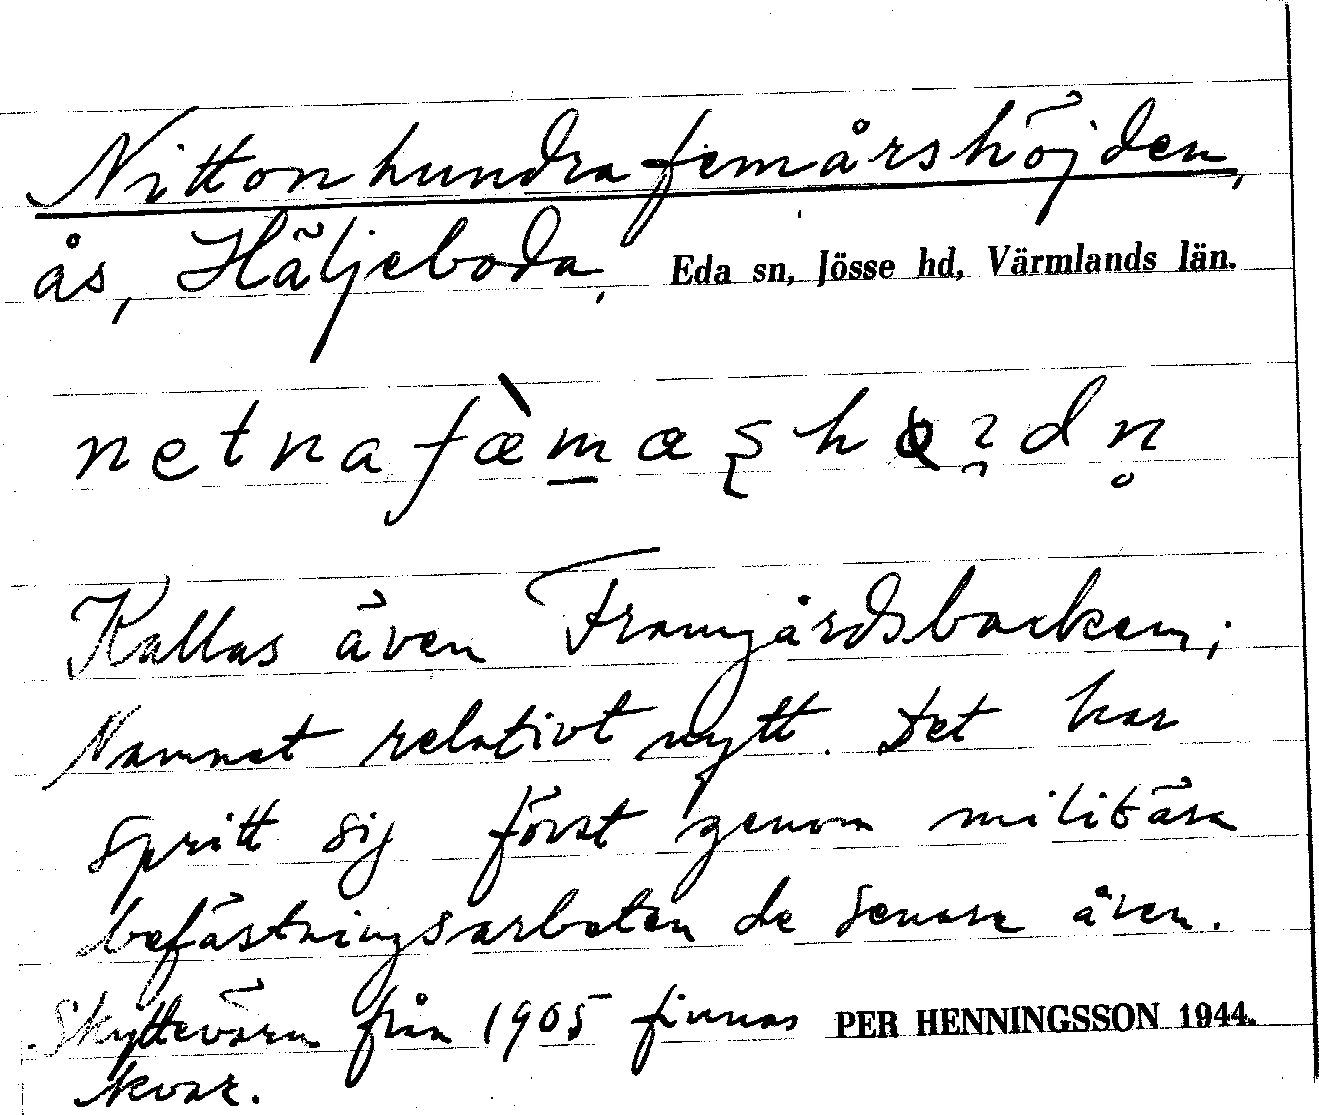 Nittonhundrafemårshöjden,
ås, Häljeboda, Eda sn, Jösse hd, Värmlands län.
Kallas även Framgårdsbacken;
Namnet relativt nytt. Det har
spritt sig först genom militära
befästningsarbeten de senare åren.
Skyttevärn från 1905 finnas PER HENNINGSSON 1944.
kvar.